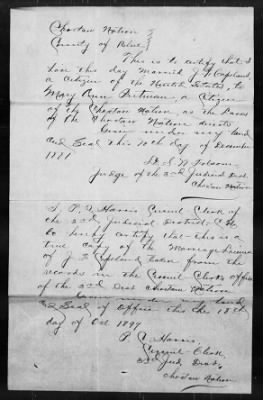 Choctaw Nation
County of Blue
This is to certify that I
have this day Married J. Y. Copeland,
a Citizen of the United States, to
Mary Ann Pitman, a Citizen
of the Choctaw Nation, as the Laws
of the Choctaw Nation directs
Given under my hand
and Seal this 10th day of December
1881
N. Folsom
Judge of the 3rd Judicial Dist
Choctaw Nation
I, P. Y. Harris Circuit Clerk of
the 3rd Judicial District C. N.
do hereby certify that this is a
true copy of the Marriage License
of J. Y. Copeland taken from the
records in the Circuit Clerks office
of the 3rd Dist Choctaw Nation.
Given under my hand
and Seal of Office this the 18th
day of Oct 1899
P. Y. Harris,
Circuit Clerk
3rd Jud. Dist.
Choctaw Nation